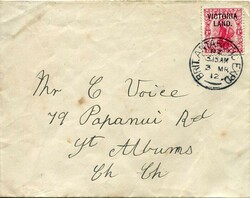 VICTORIA
LAND.
BRIT. ANTARCTIC EXPD.
3 MR
12
Mr C Voice
79 Papanui Rd
St Albans
Ch Ch